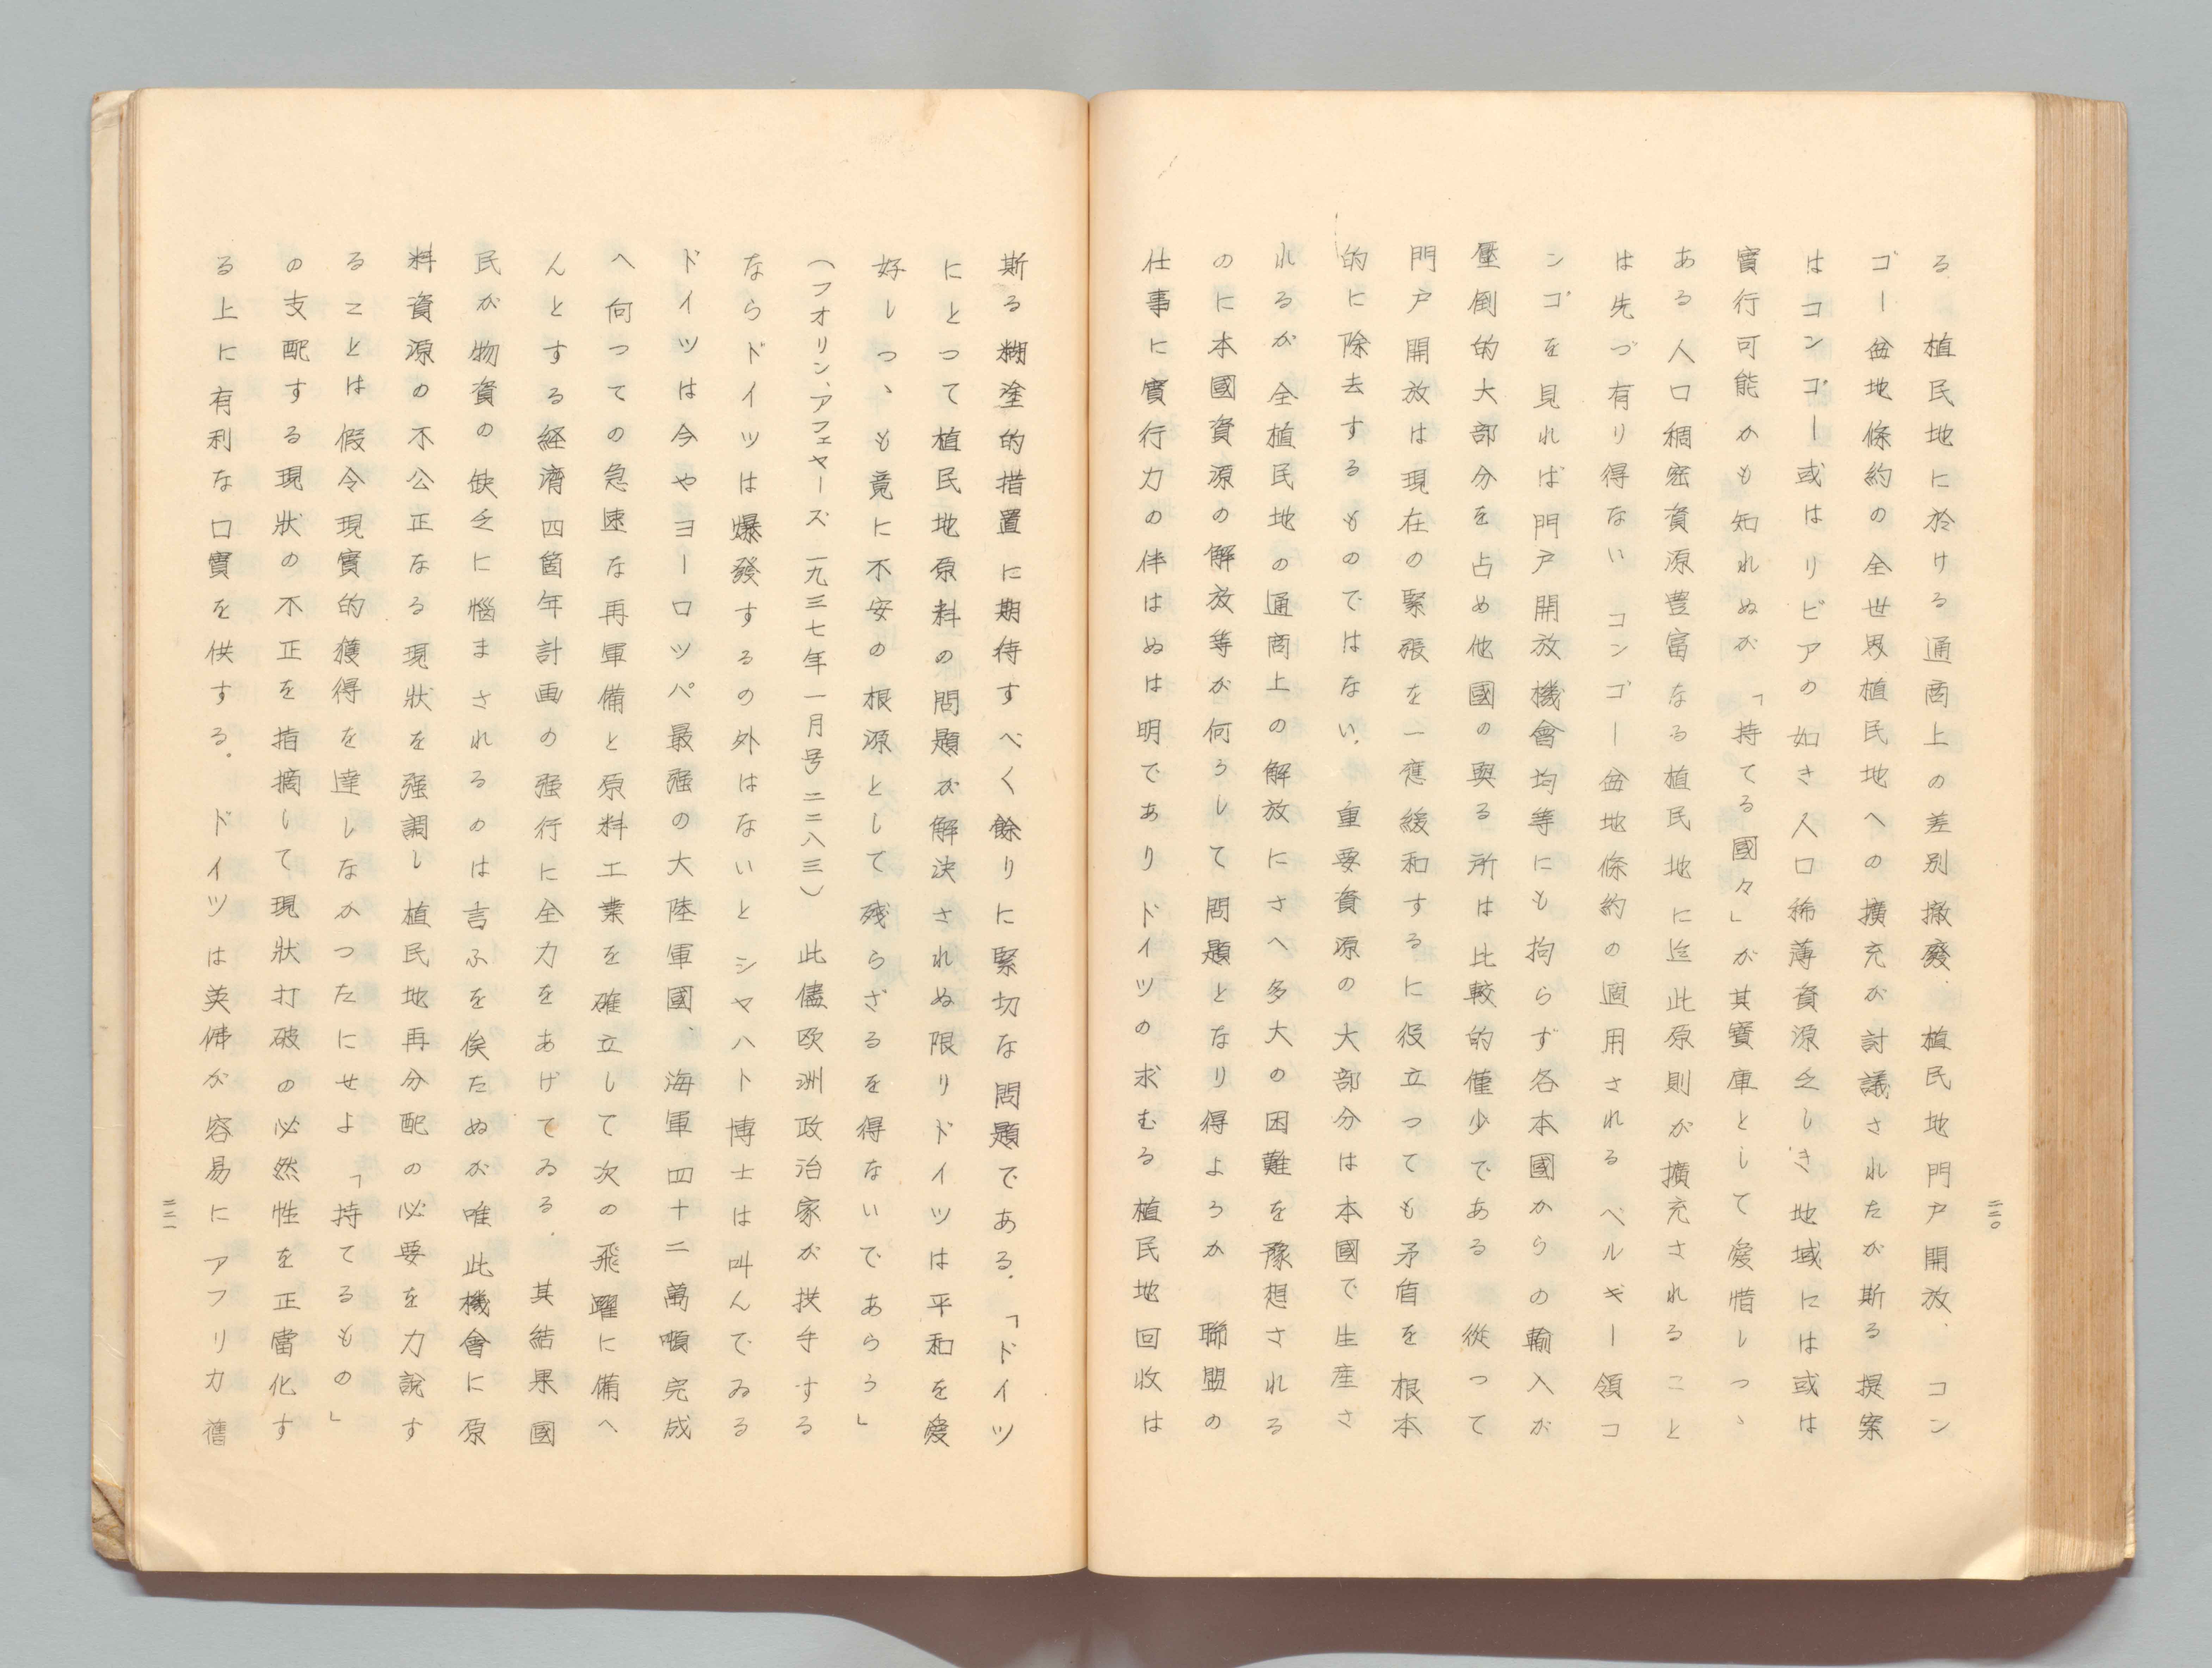 る、植民地に於ける通商上の差別撤廢．植民地門戸開放．コン
ゴー盆地條約の全世界植民地への擴充が討議されたが斯る提案
はコンゴー或はリビアの如き人口稀薄資源乏しき地域には或は
實行可能かも知れぬが「持てる國々」が其寶庫として愛惜しつゝ
ある人口稠密資源豊富なる植民地に迄此原則が擴充されること
は先づ有り得ない　コンゴー盆地條約の適用されるベルギー領コ
ンゴを見れば門戸開放機會均等にも拘らず各本國からの輸入が
壓倒的大部分を占め他國の與る所は比較的僅少である　從つて
門戸開放は現在の緊張を一應緩和するに役立つても矛盾を根本
的に除去するものではない．重要資源の大部分は本國で生産さ
れるが全植民地の通商上の解放にさへ多大の困難を豫想される
のに本國資源の解放等が何うして問題となり得ようか　聯盟の
仕事に實行力の伴はぬは明でありドイツの求むる植民地回收は
二三〇
斯る糊塗的措置に期待すべく餘りに緊切な問題である．「ドイツ
にとつて植民地原料の問題が解決されぬ限りドイツは平和を愛
好しつゝも竟に不安の根源として残らざるを得ないであらう」
（フオリン、アフェヤーズ一九三七年一月号二二八三）此儘欧洲政治家が拱手する
ならドイツは爆發するの外はないとシヤハト博士は叫んでゐる
ドイツは今やヨーロツパ最强の大陸軍國、海軍四十二萬噸完成
へ向つての急速な再軍備と原料工業を確立して次の飛躍に備へ
んとする経濟四箇年計画の强行に全力をあげてゐる．其結果國
民が物資の缺乏に惱まされるのは言ふを俟たぬが唯此機會に原
料資源の不公正なる現狀を强調し植民地再分配の必要を力說す
ることは假令現實的獲得を達しなかつたにせよ「持てるもの」
の支配する現狀の不正を指摘して現狀打破の必然性を正當化す
る上に有利な口實を供する．ドイツは英佛が容易にアフリカ舊
二三一